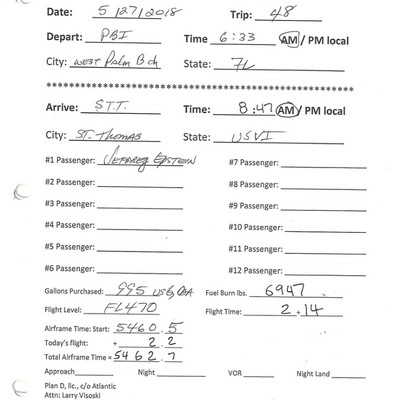 Date: 5/27/2018 Trip: 48
Depart: PBI Time 6:33 AM / PM local
City: West Palm Bch State: FL
********************************************
Arrive: STT Time: 8:47 AM / PM local
City: ST. Thomas State: USVI
#1 Passenger: Jeffrey Epstein #7 Passenger:
#2 Passenger: #8 Passenger:
#3 Passenger: #9 Passenger:
#4 Passenger: #10 Passenger:
#5 Passenger: #11 Passenger:
#6 Passenger: #12 Passenger:
Gallons Purchased: 995 USG, Fuel Burn lbs. 6947
Flight Level: FL470 Flight Time: 2+14
Airframe Time: Start: 5460.5
Today's flight: + 2.2
Total Airframe Time = 5462.7
Approach Night VOR Night Land
Plan D, llc., c/o Atlantic
Attn: Larry Visoski